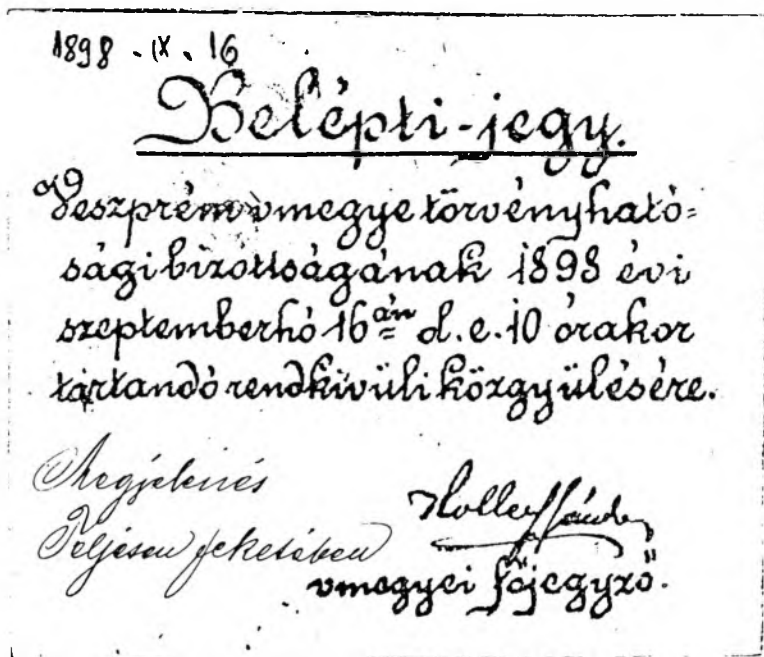 1898 - IX. 16
Belépti-jegy.
Veszprém vmegye törvényható=
sági bizottságának 1898 évi
szeptemberhó 16án d.e. 10 órakor
tartandó rendkivüli közgyülésére.
Megjelenés
Teljesen feketében
Kolley Sándor
vmegyei főjegyző.